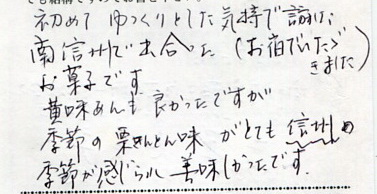 初めて ゆっくりとした気持で訪れた
南信州で出合った (お宿でいただ
きました)
お菓子です
黄味あんも 良かったですが
季節の栗きんとん味 がとても 信州の
季節が感じられ 美味しかったです